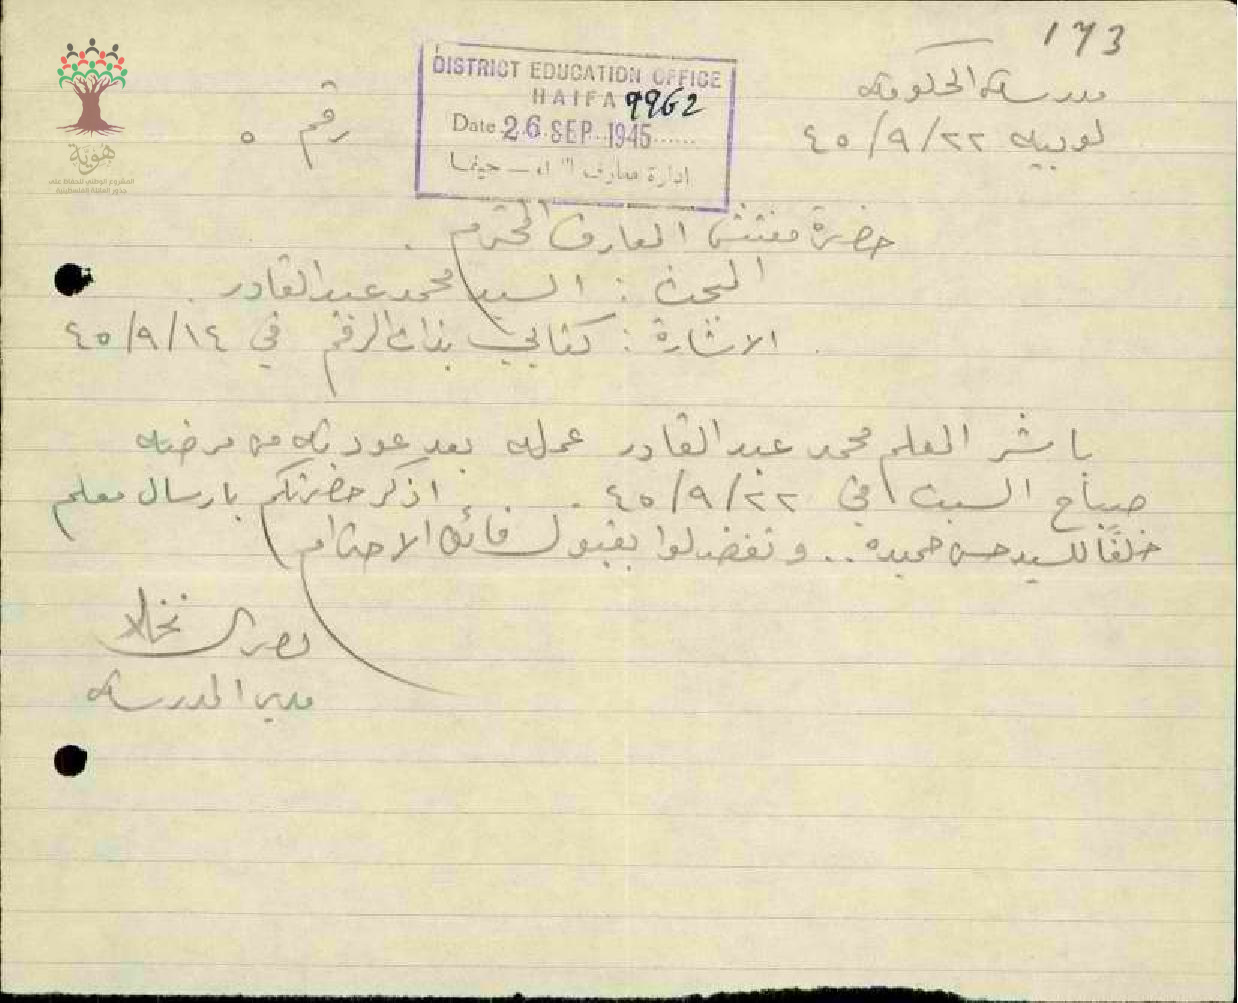 173
مدرسة الحكومة
لوبيه ٢٢/٩/٤٥
رقم ٥
DISTRICT EDUCATION OFFICE
HAIFA 9962
Date 26 SEP 1945
ادارة معارف اللواء - حيفا
هوية
المشروع الوطني للحفاظ على
جذور العائلة الفلسطينية
حضرة مفتش المعارف المحترم .
البحث : السيد محمد عبد القادر .
الاشارة : كتابي بذات الرقم في ١٤/٩/٤٥ .
باشر المعلم محمد عبد القادر عمله بعد عودته من مرضه
صباح السبت في ٢٢/٩/٤٥ . اذكر حضرتكم بارسال معلم
خلفًا للسيد حسن حميده .. وتفضلوا بقبول فائق الاحترام
مدير المدرسة